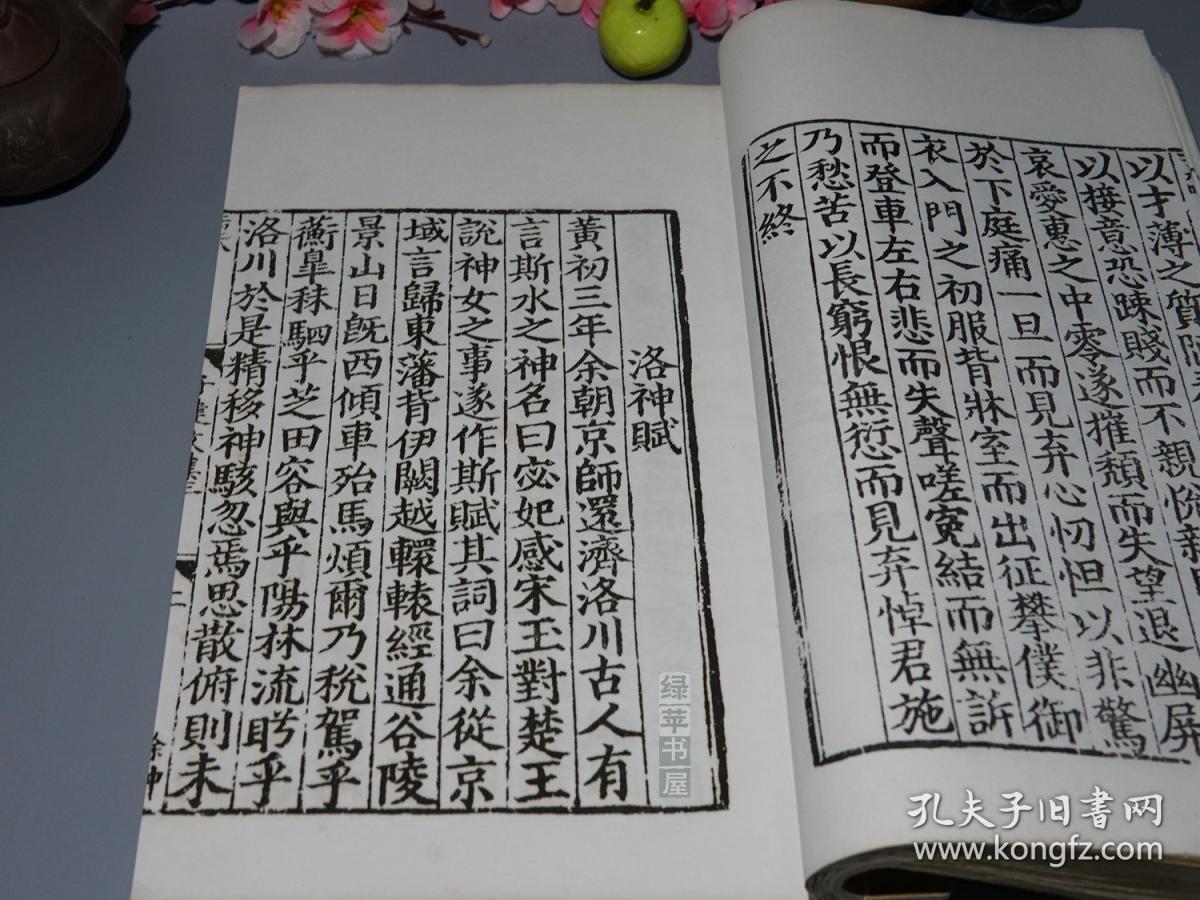 以才薄之質
以接意恐踈賤而不親恱
哀愛惠之中零遂摧頹而失望退幽屏
於下庭痛一旦而見弃心忉怛以非驚
衣入門之初服背牀室而出征攀僕御
而登車左右悲而失聲嗟寃結而無訴
乃愁苦以長窮恨無愆而見弃悼君施
之不終
洛神賦
黃初三年余朝京師還濟洛川古人有
言斯水之神名曰宓妃感宋玉對楚王
說神女之事遂作斯賦其詞曰余從京
域言歸東藩背伊闕越轘轅經通谷陵
景山日旣西傾車殆馬煩爾乃稅駕乎
蘅臯秣駟乎芝田容與乎陽林流眄乎
洛川於是精移神駭忽焉思散俯則未
绿苹书屋
孔夫子旧书网
www.kongfz.com